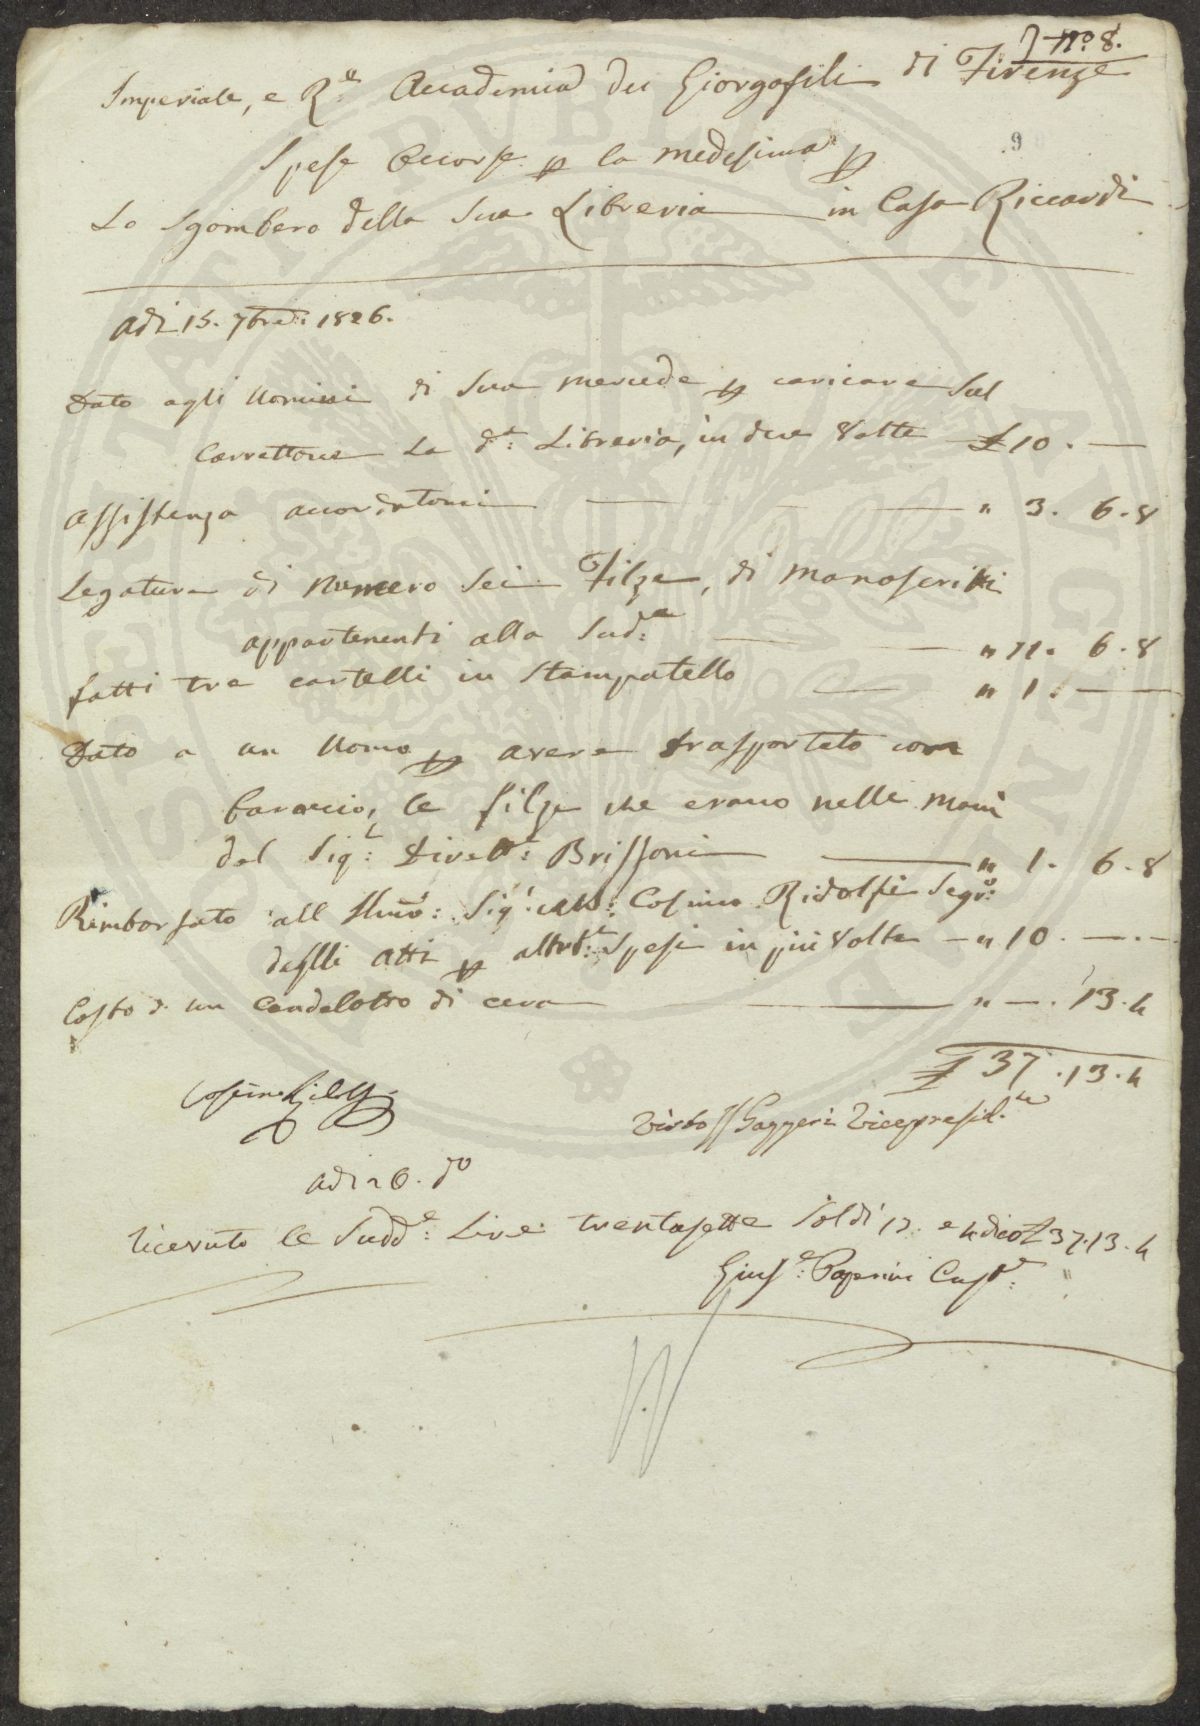 J nº. 8.
Imperiale, e R.le Accademia dei Giorgofili di Firenze
90
Spese Occorse p la medesima p
Lo Sgombero della Sua Libreria in Casa Riccardi
Adi 15. 7bre: 1826.
Dato agli Uomini di Sua mercede p caricare Sul
Carrettone La d.a: Libreria, in due Volte £ 10. —
Assistenza accordatomi — " 3. 6. 8
Legatura di Numero Sei Filze, di manoscritti
appartenenti alla Sud.a: — " 11. 6. 8
fatti tre cartelli in Stampatello — " 1. —
Dato a un Uomo p avere trasportato con
baroccio, le filze che erano nelle mani
del Sig.r: Dirett.e: Brissoni — " 1. 6. 8
Rimborsato all Illmo: Sig.r: Cosimo Ridolfi Segr.o:
deglli Atti p altret.e: Spese in più Volte — " 10. —. —
Costo di un Candelotto di cera — " —. 13. 4
£ 37. 13. 4
Cosimo Ridolfi
Visto Gazzeri Vicepresid.te
Adi 26. do
Ricevuto le Sudd.e: Lire trentasette Soldi 13. e 4 dico £ 37. 13. 4
Gius.e: Papini Cust.e: